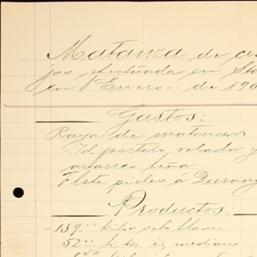 Matanza de
jas efectuada en
en 1º Enero de 190
Gastos:
Raya de matanceros
Id. portero, velador y
acarreo leña
Flete pieles á Durang
Productos:
139 kilos sebo
52